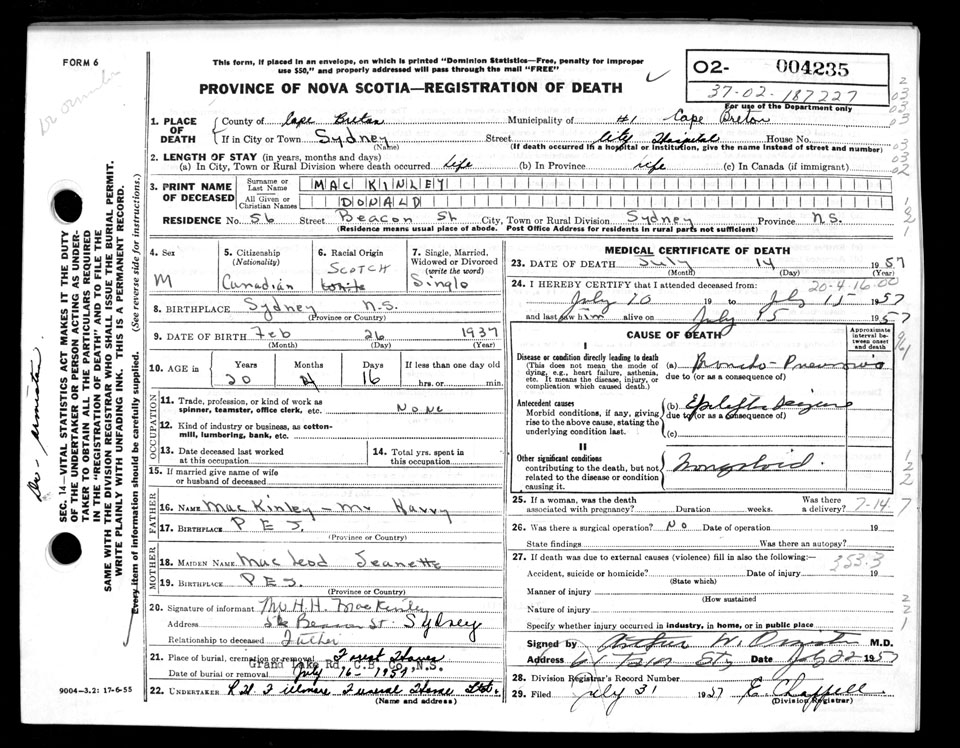 FORM 6
This form, if placed in an envelope, on which is printed "Dominion Statistics—Free, penalty for improper
use $50," and properly addressed will pass through the mail "FREE"
O2- 004235
37-02-187227
For use of the Department only
PROVINCE OF NOVA SCOTIA—REGISTRATION OF DEATH
1. PLACE OF DEATH
County of Cape Breton Municipality of #1 Cape Breton
If in City or Town Sydney Street City Hospital House No.
(Name) (If death occurred in a hospital or institution, give the name instead of street and number)
2. LENGTH OF STAY (in years, months and days)
(a) In City, Town or Rural Division where death occurred Life (b) In Province Life (c) In Canada (if immigrant)
3. PRINT NAME OF DECEASED
Surname or Last Name MAC KINLEY
All Given or Christian Names DONALD
RESIDENCE No. 56 Street Beacon St City, Town or Rural Division Sydney Province N.S.
(Residence means usual place of abode. Post Office Address for residents in rural parts not sufficient)
4. Sex
M
5. Citizenship
(Nationality)
Canadian
6. Racial Origin
SCOTCH
White
7. Single, Married, Widowed or Divorced
(write the word)
Single
8. BIRTHPLACE Sydney N.S.
(Province or Country)
9. DATE OF BIRTH Feb 26 1937
(Month) (Day) (Year)
10. AGE
Years Months Days If less than one day old
20 4 16 hrs. or min.
OCCUPATION
11. Trade, profession, or kind of work as
spinner, teamster, office clerk, etc. NONE
12. Kind of industry or business, as cotton-
mill, lumbering, bank, etc.
13. Date deceased last worked
at this occupation
14. Total yrs. spent in
this occupation
15. If married give name of wife
or husband of deceased
FATHER
16. NAME MacKinley - Mr Harry
17. BIRTHPLACE P E I.
(Province or Country)
MOTHER
18. MAIDEN NAME MacLeod Jeanette
19. BIRTHPLACE P E I.
(Province or Country)
20. Signature of informant Mr H.H. MacKinley
Address 56 Beacon St. Sydney
Relationship to deceased Father
21. Place of burial, cremation or removal Forest Haven
Grand Lake Rd, C.B. Co., N.S.
Date of burial or removal July 16 - 1957
22. UNDERTAKER R H Fillmore Funeral Home Ltd.
(Name and address)
MEDICAL CERTIFICATE OF DEATH
23. DATE OF DEATH July 14 1957
(Month) (Day) (Year)
24. I HEREBY CERTIFY that I attended deceased from:
20-4-16-00
July 10 19 to July 15 1957
and last saw him alive on July 15 1957
CAUSE OF DEATH
Approximate interval between onset and death
I
Disease or condition directly leading to death
(This does not mean the mode of dying, e.g., heart failure, asthenia, etc. It means the disease, injury, or complication which caused death.)
(a) Broncho-Pneumonia
due to (or as a consequence of)
Antecedent causes
Morbid conditions, if any, giving rise to the above cause, stating the underlying condition last.
(b) Epileptic Seizure
due to (or as a consequence of)
(c)
II
Other significant conditions
contributing to the death, but not related to the disease or condition causing it.
Mongoloid.
25. If a woman, was the death Was there
associated with pregnancy? Duration weeks. a delivery?
7-14-7
26. Was there a surgical operation? No Date of operation 19
State findings Was there an autopsy?
27. If death was due to external causes (violence) fill in also the following:
353.3
Accident, suicide or homicide? Date of injury 19
(State which)
Manner of injury
(How sustained
Nature of injury
Specify whether injury occurred in industry, in home, or in public place
Signed by Arthur W. M.D.
Address Date July 22 1957
28. Division Registrar's Record Number
29. Filed July 31 1957 E. Chappell
(Division Registrar)
SEC. 14—VITAL STATISTICS ACT MAKES IT THE DUTY
OF THE UNDERTAKER OR PERSON ACTING AS UNDER-
TAKER TO OBTAIN ALL THE PARTICULARS REQUIRED
IN THE "REGISTRATION OF DEATH" AND TO FILE THE
SAME WITH THE DIVISION REGISTRAR WHO SHALL ISSUE THE BURIAL PERMIT.
WRITE PLAINLY WITH UNFADING INK. THIS IS A PERMANENT RECORD.
Every item of information should be carefully supplied. (See reverse side for instructions.)
9004-3.2: 17-6-55